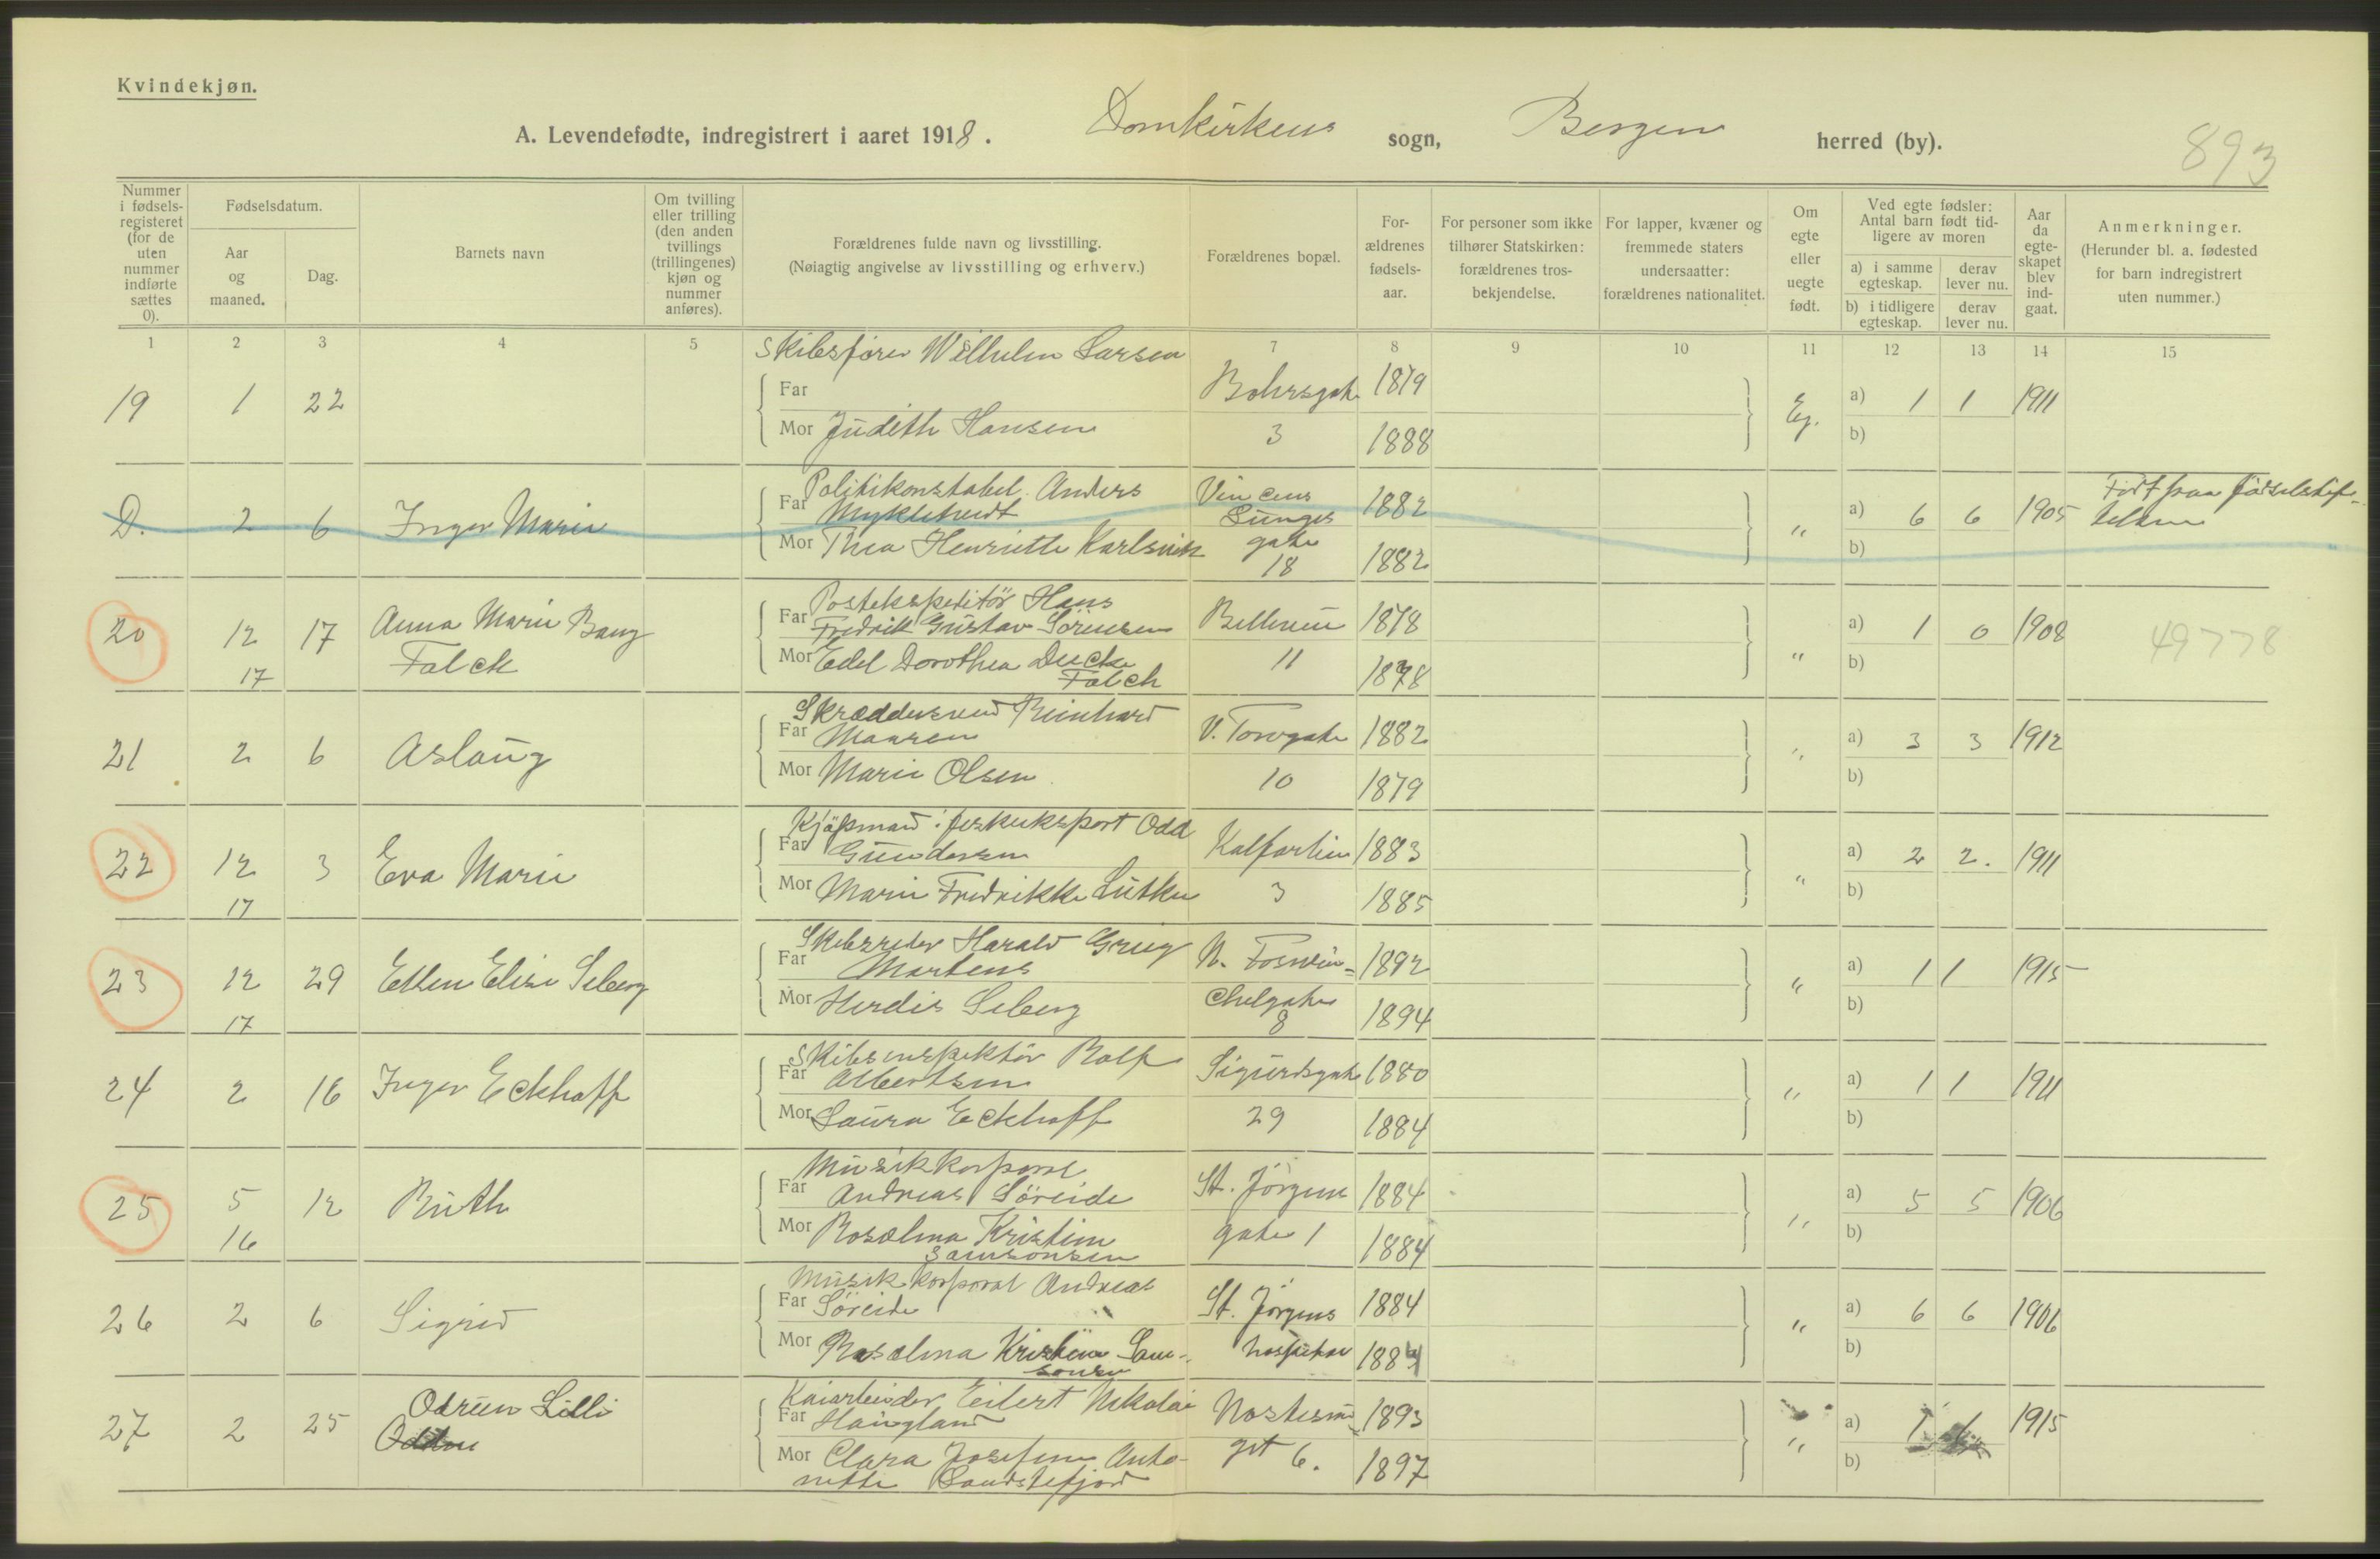 Kvindekjøn.
A. Levendefødte, indregistrert i aaret 1918. Domkirkens sogn, Bergen herred (by).
893
Nummer i fødsels-registeret (for de uten nummer indførte sættes 0).
Fødselsdatum.
Aar og maaned.
Dag.
Barnets navn
Om tvilling eller trilling (den anden tvillings (trillingenes) kjøn og nummer anføres).
Forældrenes fulde navn og livsstilling.
(Nøiagtig angivelse av livsstilling og erhverv.)
Forældrenes bopæl.
For-ældrenes fødsels-aar.
For personer som ikke tilhører Statskirken: forældrenes tros-bekjendelse.
For lapper, kvæner og fremmede staters undersaatter: forældrenes nationalitet.
Om egte eller uegte født.
Ved egte fødsler: Antal barn født tid-ligere av moren
a) i samme egteskap.
derav lever nu.
b) i tidligere egteskap.
derav lever nu.
Aar da egte-skapet blev ind-gaat.
Anmerkninger.
(Herunder bl. a. fødested for barn indregistrert uten nummer.)
1 2 3 4 5 7 8 9 10 11 12 13 14 15
Skibsfører Wilhelm Larsen
19 1 22 Far Bohrsgate 1879 Eg. a) 1 1 1911
Mor Judith Hansen 3 1888 b)
Politikonstabel Anders Vincens
D. 2 6 Inger Marie Far Myklehedt Lunges 1882 " a) 6 6 1905
Mor Thea Henriette Karlsvik gate 18 1882 b)
Postekspeditör Hans
20 12 17 Anna Marie Bang Far Fredrik Gustav Sörensen Bellevue 1878 " a) 1 0 1908 49778
17 Falck Mor Edel Dorothea Ducke Falch 11 1878 b)
Skræddersvend Reinhard
21 2 6 Aslaug Far Maaren V. Torvgate 1882 " a) 3 3 1912
Mor Marie Olsen 10 1879 b)
Kjøpmand i fiskeeksport Odd
22 12 3 Eva Marie Far Gundersen Kalfarlien 1883 " a) 2 2. 1911
17 Mor Marie Fredrikke Lutken 3 1885 b)
Skibsreder Harald Grieg
23 12 29 Ellen Elise Seberg Far Martens N. Fosvin= 1892 " a) 1 1 1915
17 Mor Herdis Seberg ckelgate 8 1894 b)
Skibsinspektör Rolf
24 2 16 Inger Eckhoff Far Albertsen Sigurdsgate 1880 " a) 1 1 1911
Mor Laura Eckhoff 29 1884 b)
Musikkorporal
25 5 12 Ruth Far Andreas Söreide St. Jörgens 1884 " a) 5 5 1906
16 Mor Rosalina Kristine Samsonsen gate 1 1884 b)
Musikkorporal Andreas
26 2 6 Sigrid Far Söreide St. Jörgens 1884 " a) 6 6 1906
Mor Rosalina Kristine Sam-sonsen hospital 1884 b)
Kaiarbeider Eilert Nikolai
27 2 25 Odrun Lilli Far Haugland Nostesmu= 1893 " a) 1 1 1915
Mor Clara Josefine Anto-nette Sandstefjord get 6. 1897 b)